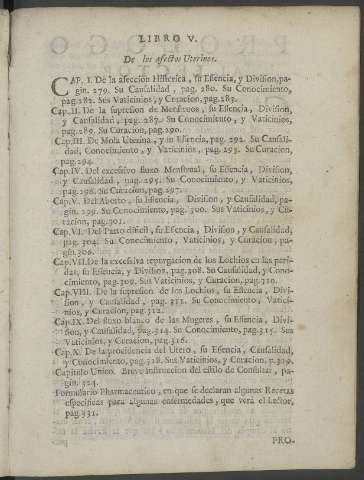 LIBRO V.
De los afectos Uterinos.
CAP. I. De la afeccion Histerica, su Essencia, y Division, pa-
gin. 279. Su Causalidad, pag. 280. Su Conocimiento,
pag. 282. Sus Vaticinios, y Curacion, pag. 283.
Cap. II. De la supresion de Menstruos, su Essencia, Division,
y Causalidad, pag. 287. Su Conocimiento, y Vaticinios,
pag. 289. Su Curacion, pag. 290.
Cap. III. De Mola Uterina, y su Essencia, pag. 292. Su Causali-
dad, Conocimiento, y Vaticinios, pag. 293. Su Curacion,
pag. 294.
Cap. IV. Del excessivo fluxo Menstrual, su Essencia, Division,
y Causalidad, pag. 295. Su Conocimiento, y Vaticinios,
pag. 296. Su Curacion, pag. 297.
Cap. V. Del Aborto, su Essencia, Division, y Causalidad, pa-
gin. 299. Su Conocimiento, pag. 300. Sus Vaticinios, y Cu-
racion, pag. 301.
Cap. VI. Del Parto dificil, su Essencia, Division, y Causalidad,
pag. 304. Su Conocimiento, Vaticinios, y Curacion, pa-
gin. 306.
Cap. VII. De la excessiva repurgacion de los Lochios en las pari-
das, su Essencia, y Division, pag. 308. Su Causalidad, y Cono-
cimiento, pag. 309. Sus Vaticinios, y Curacion, pag. 310.
Cap. VIII. De la supresion de los Lochios, su Essencia, Divi-
sion, y Causalidad, pag. 311. Su Conocimiento, Vatici-
nios, y Curacion, pag. 312.
Cap. IX. Del fluxo blanco de las Mugeres, su Essencia, Divi-
sion, y Causalidad, pag. 314. Su Conocimiento, pag. 315. Sus
Vaticinios, y Curacion, pag. 316.
Cap. X. De la procidencia del Utero, su Essencia, Causalidad,
y Conocimiento, pag. 318. Sus Vaticinios, y Curacion, p. 319.
Capitulo Unico. Breve instruccion del estilo de Consultar, pa-
gin. 324.
Formulario Pharmaceutico, en que se declaran algunas Recetas
especificas para algunas enfermedades, que verà el Lector,
pag. 331.
PRO-